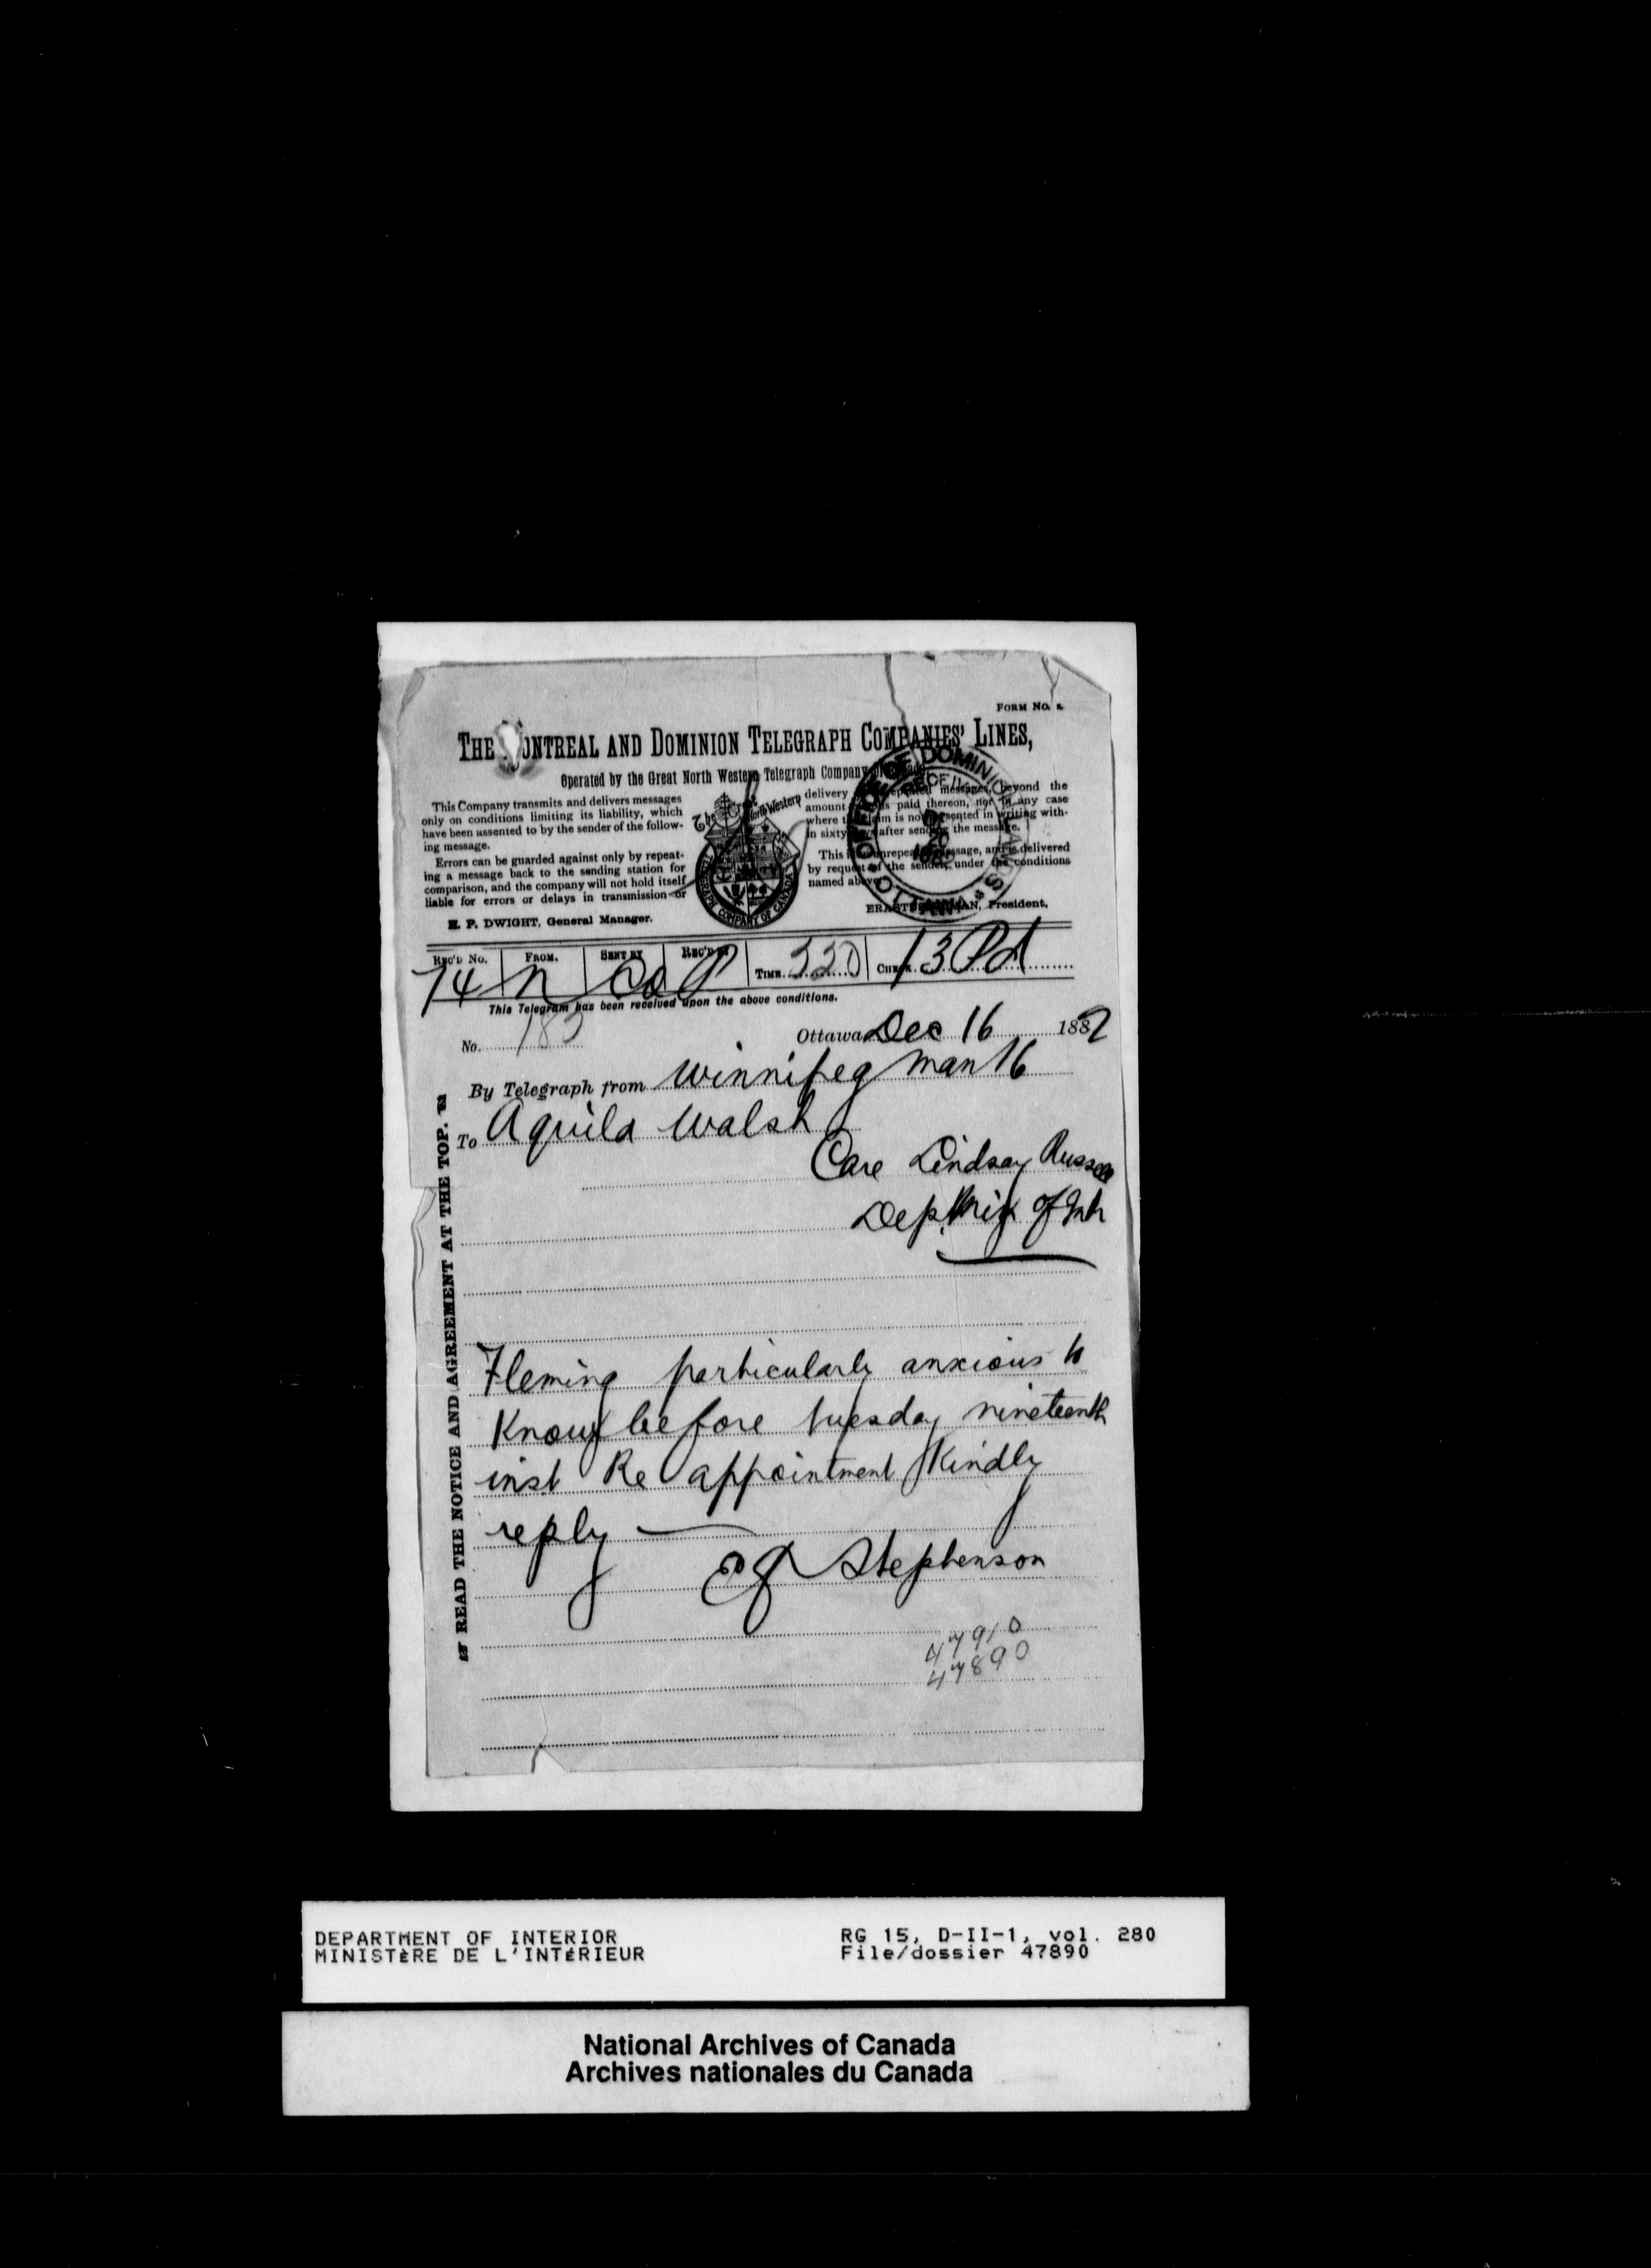 FORM No.
THE MONTREAL AND DOMINION TELEGRAPH COMPANIES' LINES,
Operated by the Great North Western Telegraph Company
This Company transmits and delivers messages
only on conditions limiting its liability, which
have been assented to by the sender of the follow-
ing message.
Errors can be guarded against only by repeat-
ing a message back to the sending station for
comparison, and the company will not hold itself
liable for errors or delays in transmission or
H. P. DWIGHT, General Manager.
The Great North Western
TELEGRAPH COMPANY OF CANADA
delivery messages, beyond the
amount paid thereon, nor in any case
where the claim is not presented in writing with-
in sixty days after sending the message.
This is an unrepeated message, and is delivered
by request of the sender, under the conditions
named above.
ERASTUS WIMAN, President.
OFFICE OF DOMINION LANDS OTTAWA
REC'D No. FROM. SENT BY REC'D BY TIME. CHECK.
74 N Co 320 13 Pd
This Telegram has been received upon the above conditions.
No. 183
Ottawa Dec 16 1882
By Telegraph from Winnipeg Man 16
To Aquila Walsh
Care Lindsay Russell
Dep. Min of Int
READ THE NOTICE AND AGREEMENT AT THE TOP.
Fleming particularly anxious to
Know before tuesday nineteenth
inst Re appointment Kindly
reply
Stephenson
47910
47890
DEPARTMENT OF INTERIOR
MINISTÈRE DE L'INTÉRIEUR
RG 15, D-II-1, vol. 280
File/dossier 47890
National Archives of Canada
Archives nationales du Canada